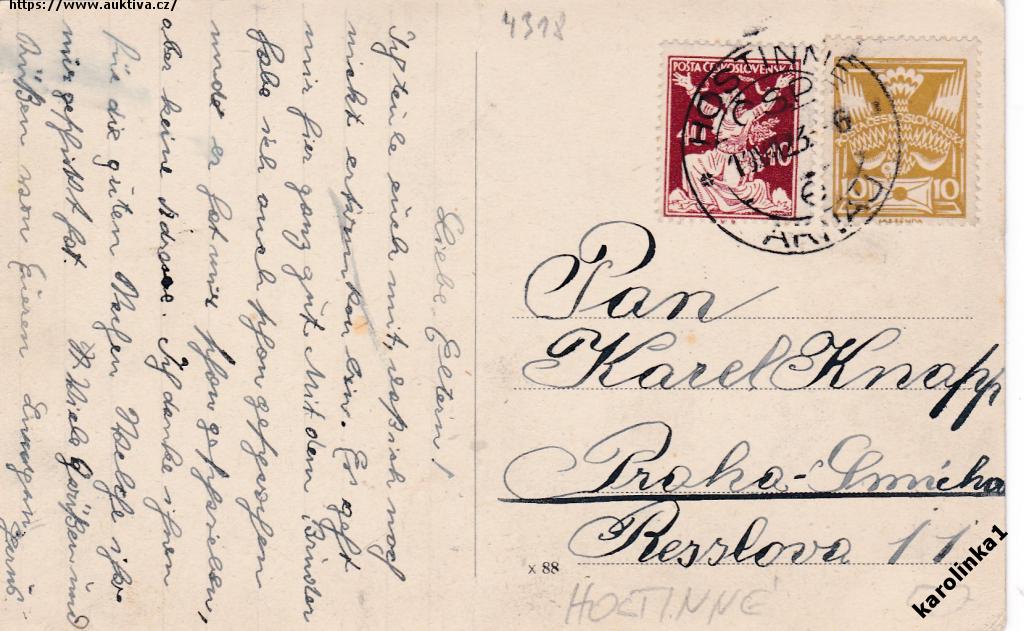 https://www.auktiva.cz/
4318
POSTA ČESKOSLOVENSKÁ
10
ČESKOSLOVENSKÁ
10
HOSTINNÉ
ČSP
23
6
ARNAU
Liebe Eltern!
Ich teile euch mit, daß ich noch
nicht bin. Es geht
mir hier ganz gut. Mit dem Bruder
habe ich auch schon gesprochen
und er hat mir schon geschrieben,
aber keine Adresse. Ich danke ihnen
für die guten Sachen Welche ihr
mir geschickt hat. Viele Grüßen und
Küßen von Eueren
Pan
Karel Knapp
Praha-Smícho
Resslova 11
x 88
HOSTINNÉ
karolinka1